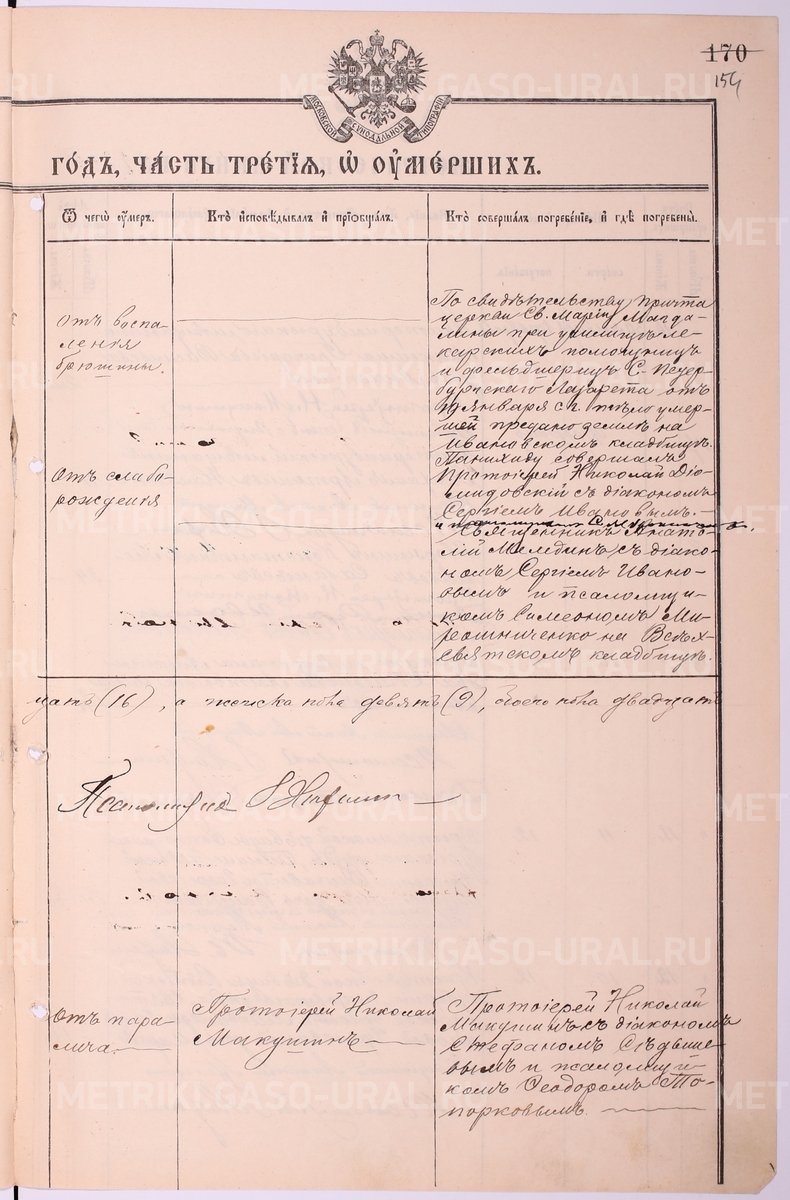 170
154
МОСКОВСКОЙ СѴНОДАЛЬНОЙ ТИПОГРАФІИ
ГОДЪ, ЧАСТЬ ТРЕТІЯ, Ѡ ОУМЕРШИХЪ.
Ѿ чегѡ оумеръ.
Кто исповѣдывалъ и пріобщалъ.
Кто совершалъ погребеніе, и гдѣ погребены.
Отъ воспа-
ленія
брюшины.
По свидѣтельству причта
церкви Св. Маріи Магда-
лины при училищѣ ле-
карскихъ помощницъ
и фельдшерицъ С. Петер-
бургскаго Лазарета отъ
января с. г. тѣло умер-
шей предано землѣ на
Ивановскомъ кладбищѣ.
Панихиду совершалъ
Протоіерей Николай Діо-
мидовскій съ діакономъ
Сергіемъ Ивановымъ. —
Отъ слабо-
рожденія
Священникъ Анато-
лій съ діако-
номъ Сергіемъ Ивано-
вымъ и псаломщи-
комъ Симеономъ Ми-
рошниченко на Всѣх-
святскомъ кладбищѣ.
цать (16), а женска пола девять (9), обоего пола двадцать
Псаломщикъ
Отъ пара-
лича.
Протоіерей Николай
Макушинъ
Протоіерей Николай
Макушинъ съ діакономъ
Стефаномъ
вымъ и псаломщи-
комъ Ѳеодоромъ То-
порковымъ.
METRIKI.GASO-URAL.RU